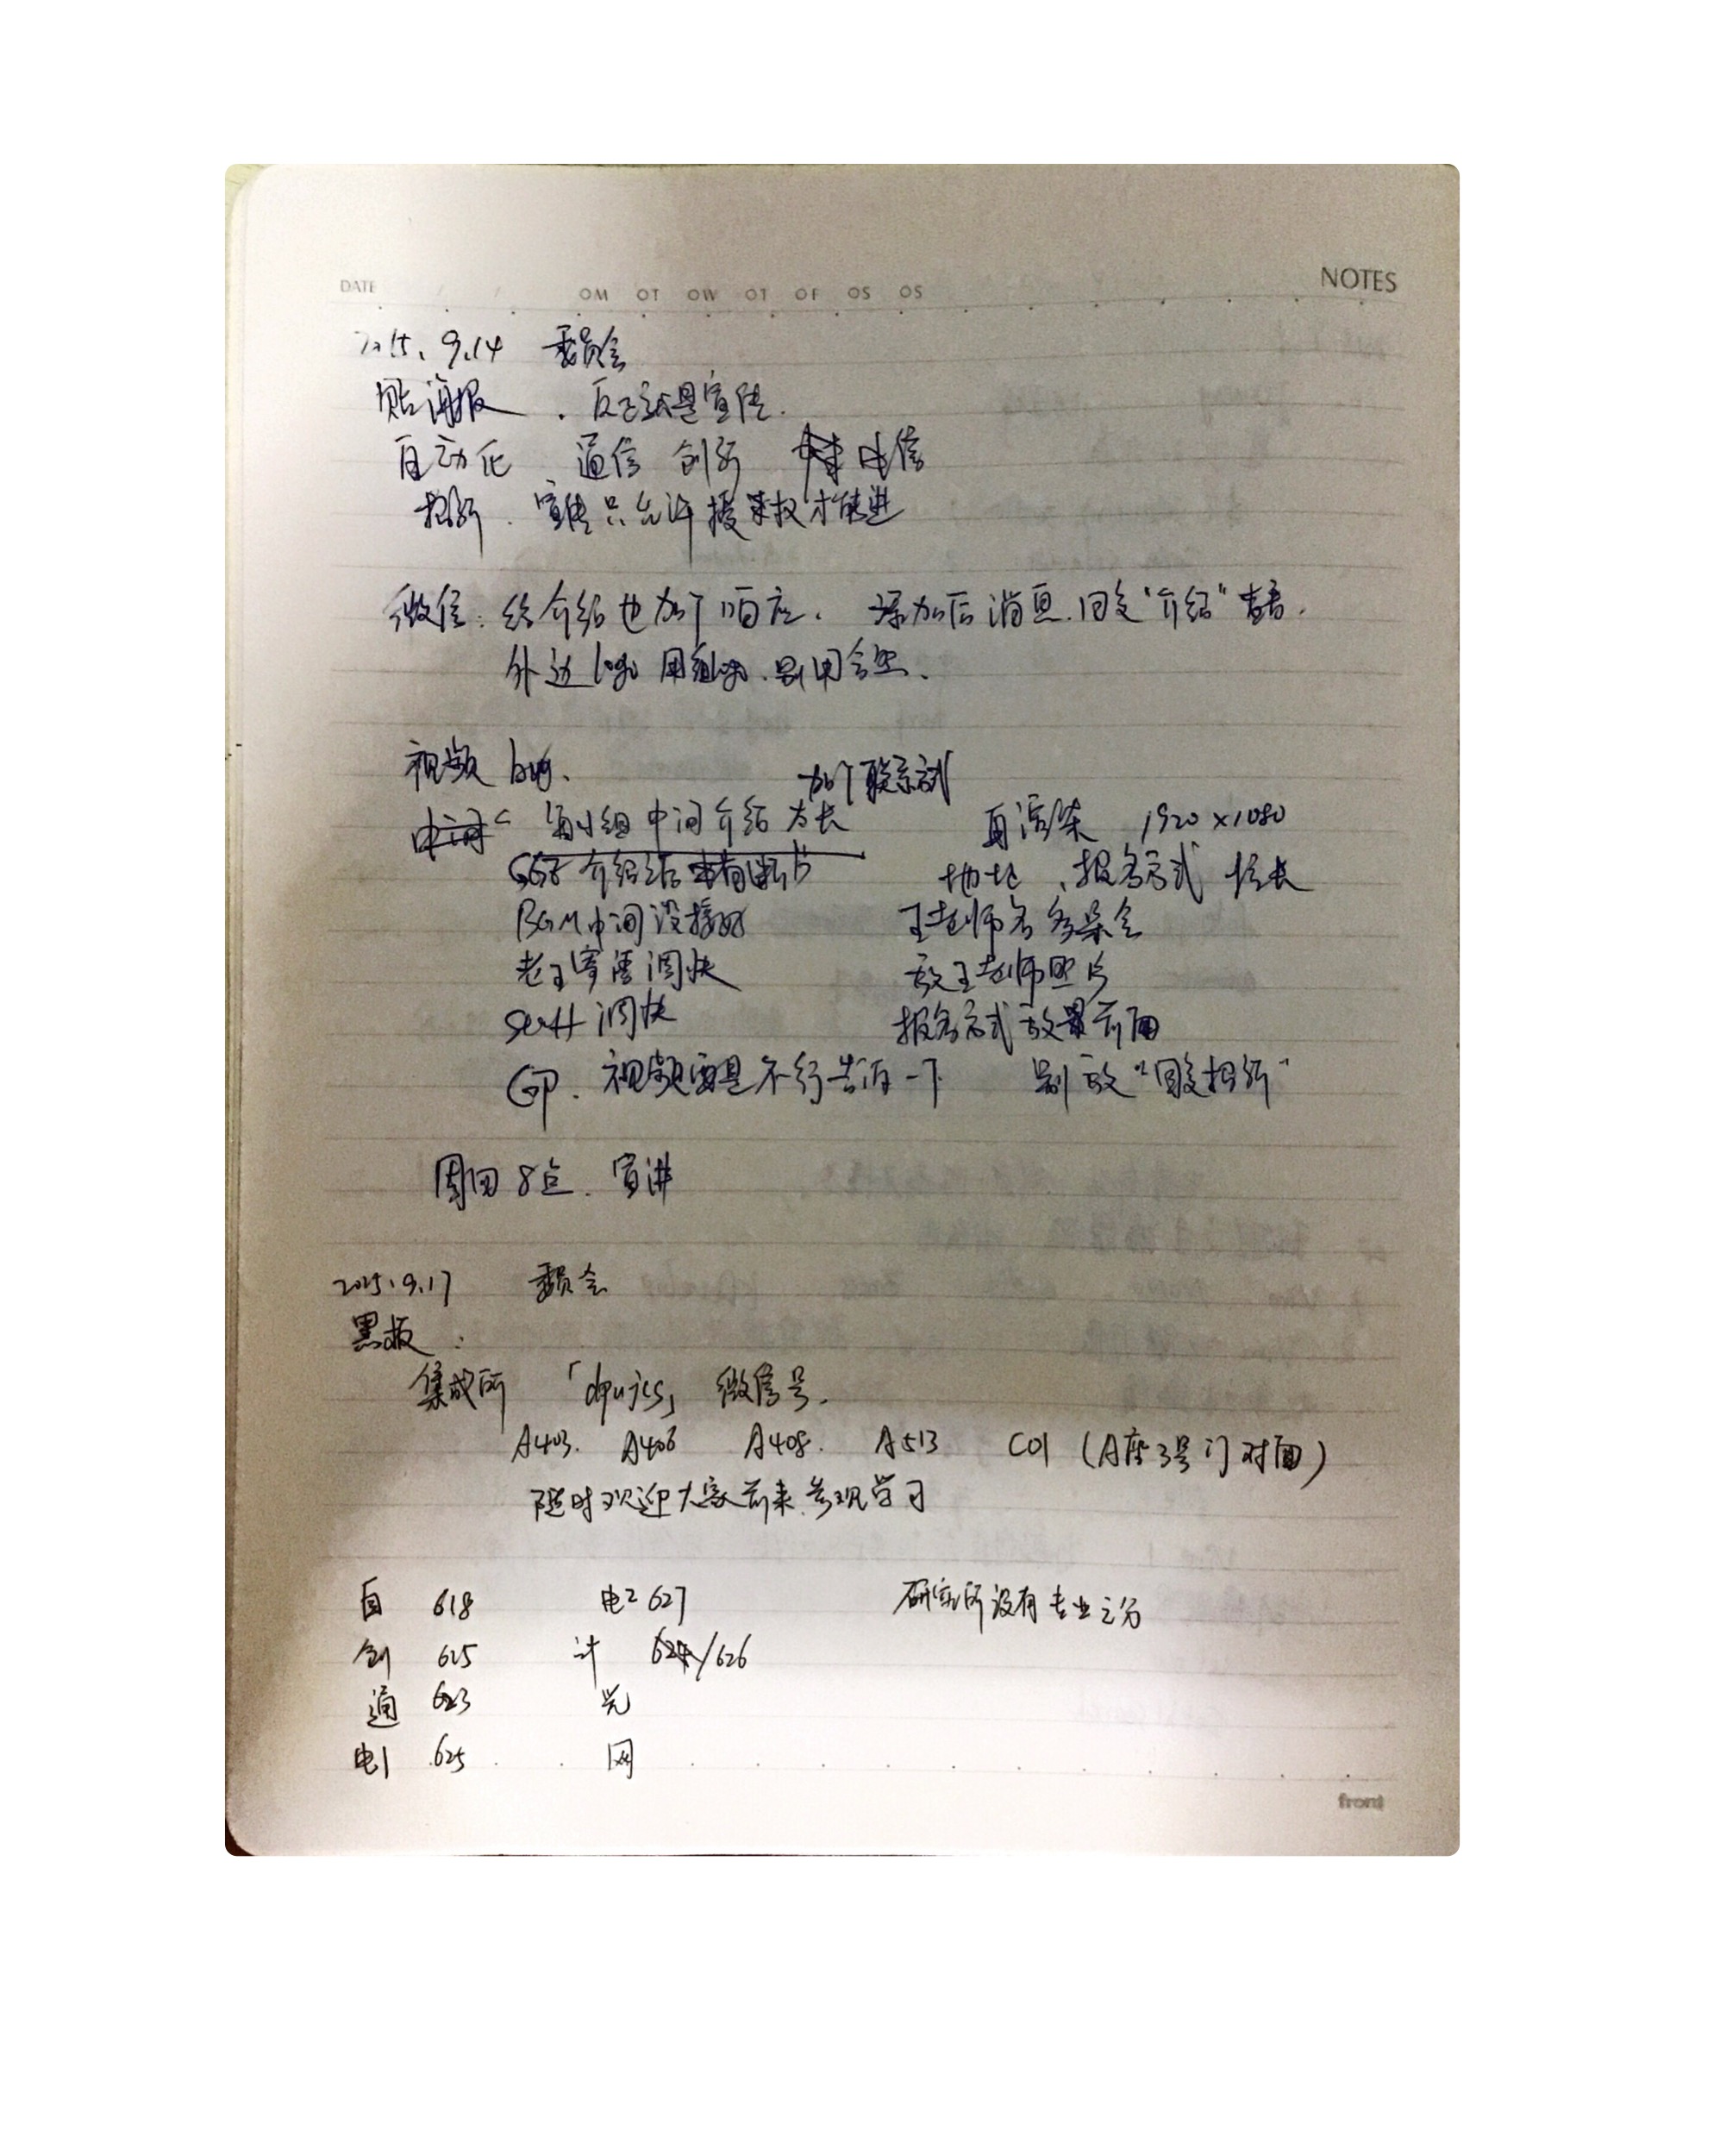 DATE / / OM OT OW OT OF OS OS NOTES
2015.9.14 委员会
贴海报 、反正就是宣传.
自动化 通信 创新 电信
招新. 宣传只允许授权才能进
微信: 给介绍也加个响应. 添加后消息.回复"介绍"查看.
外边logo 用组的.别用会歪.
视频 bug.
加个联系方式
每小组中间介绍 太长
再渲染 1920×1080
介绍结
地址、报名方式 加长
BGM中间没接好
王老师名
老王寄语调快
放王老师照片
调快
报名方式放最前面
视频要是不行告诉一下
别放"回复招新"
周四 8点. 宣讲
2015.9.17 委员会
黑板:
集成所 「dpujcs」 微信号.
A403. A406 A408. A513 C01 (A座3号门对面)
随时欢迎大家前来参观学习
自 618 电2 627 研究所没有专业之分
创 625 计 624/626
通 623 光
电1 625 网
front